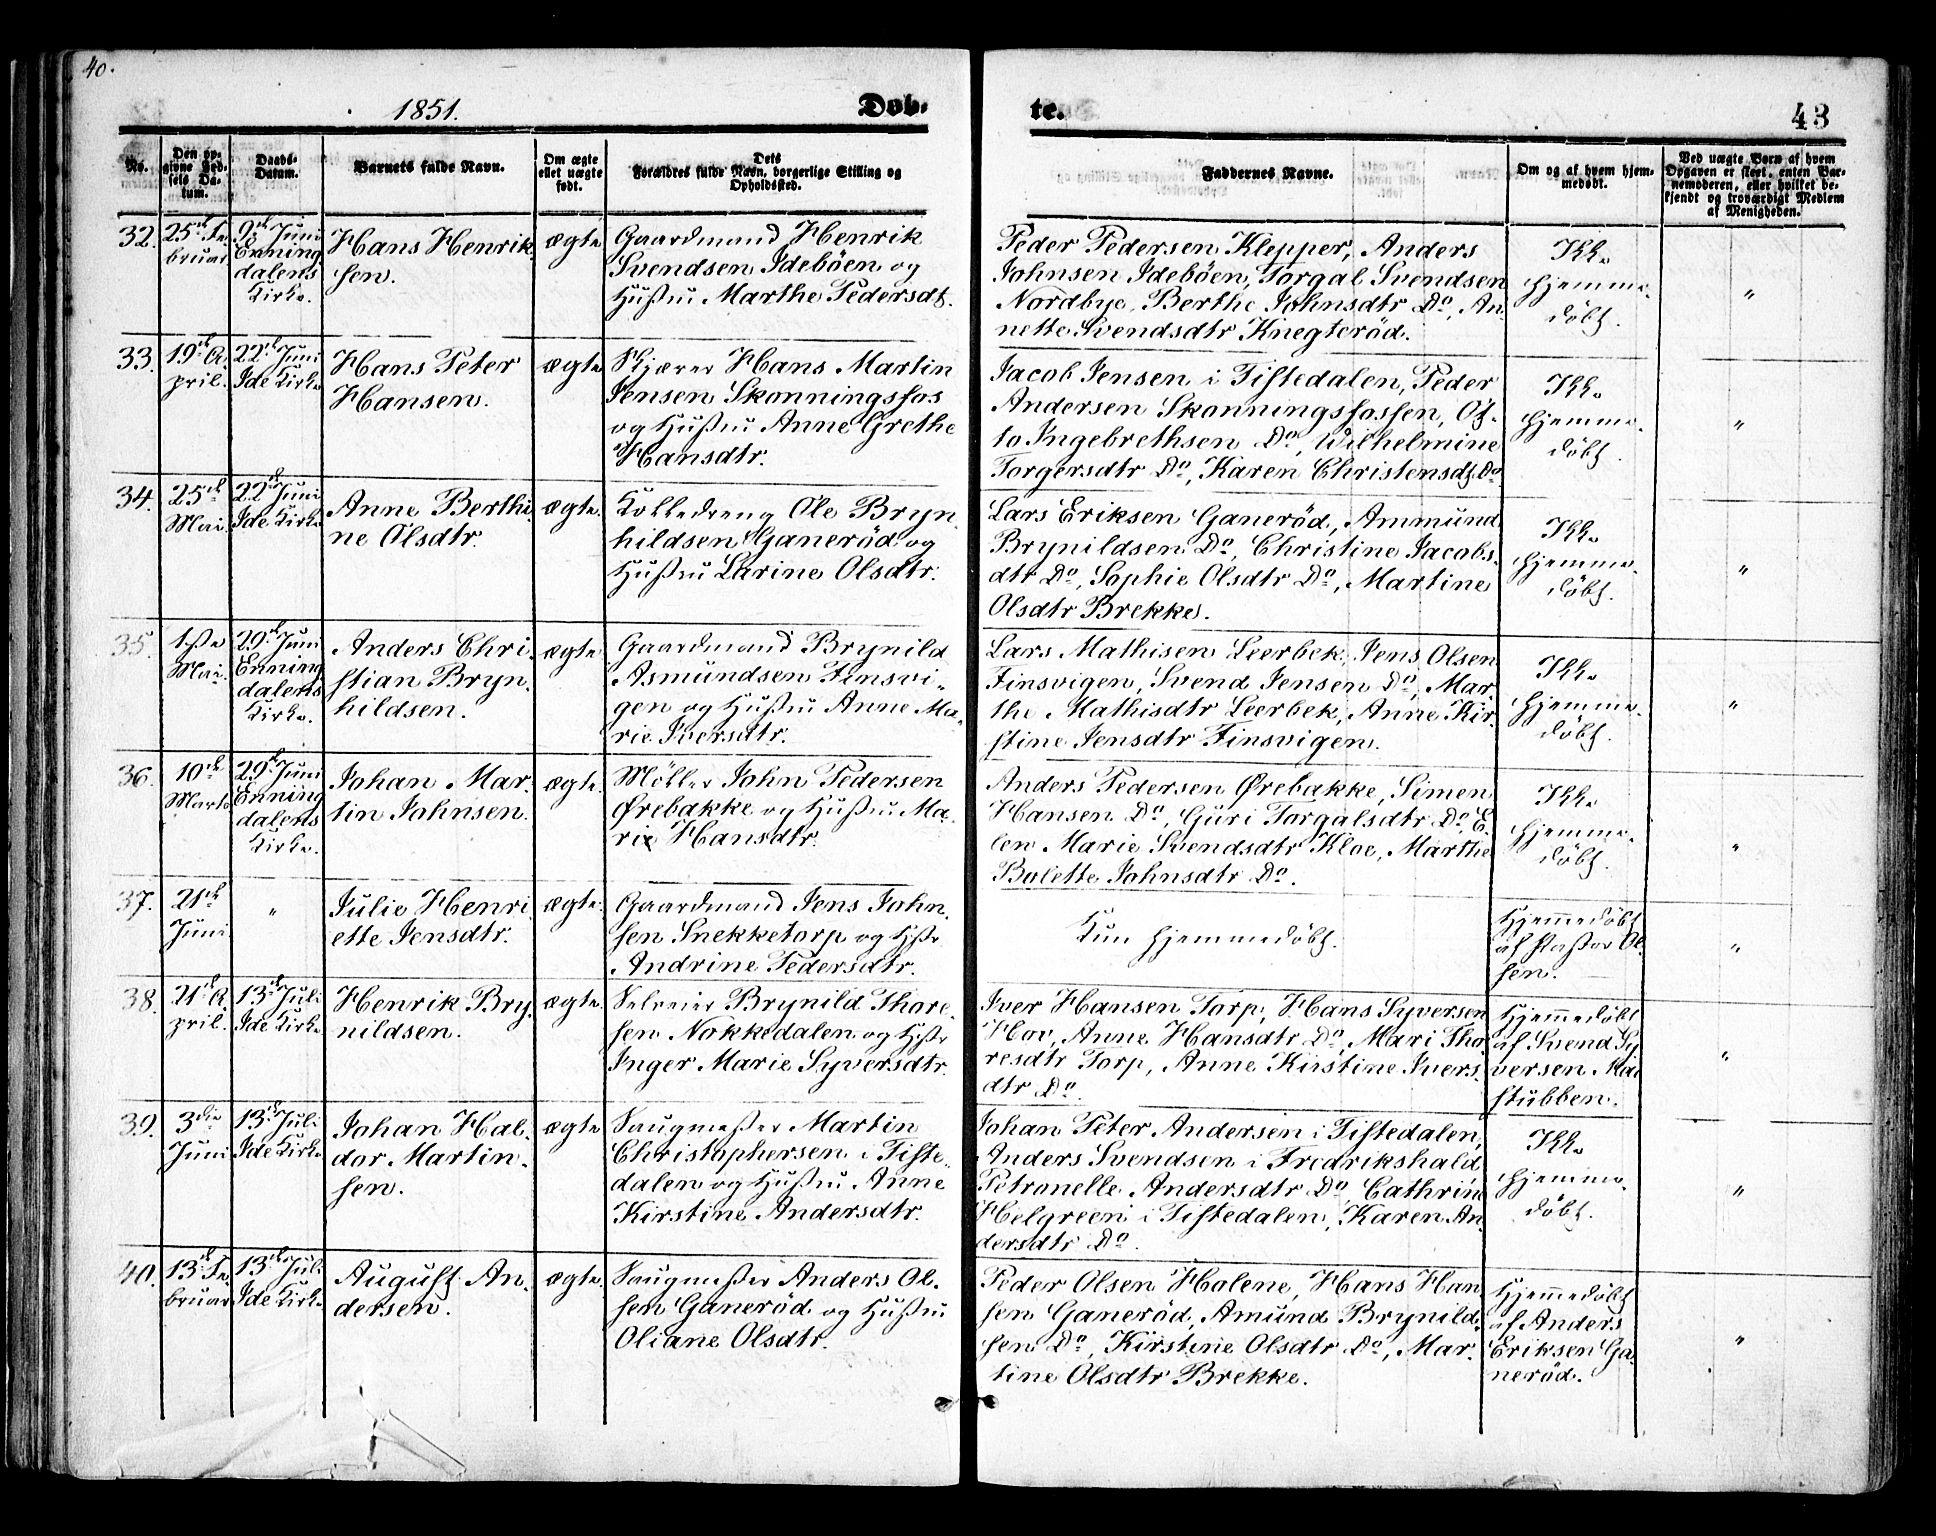 40.
1851.
Döb-
te.
43
No.
Den op-
givne Fød-
sels Da-
tum.
Daabs-
Datum.
Barnets fulde Navn.
Om ægte
ellet uægte
født.
Dets
Forældres fulde Navn, borgerlige Stilling og
Opholdssted.
Faddernes Navne.
Om og af hvem hjem-
medøbt.
Ved uægte Børn af hvem
Opgaven er skeet, enten Bar-
nemoderen, eller hvilket be-
kjendt og troværdigt Medlem
af Menigheden.
32.
25de Fe-
bruar
9de Juni
Enning
dalens
Kirke.
Hans Henrik
sen.
ægte
Gaardmand Henrik
Svendsen Ideböen og
Hustru Marthe Pedersdt.
Peder Pedersen Klepper, Anders
Johnsen Ideböen, Torgal Svendsen
Nordbye, Berthe Johnsdtr Do, An
nette Svendsdtr Knegteröd.
Ikke
hjemme-
döbt.
"
33.
19de A
pril.
22de Juni
Ide Kirke
Hans Peter
Hansen.
ægte
Skjærer Hans Martin
Jensen Skonningsfos
og Hustru Anne Grethe
Hansdtr.
Jacob Jensen i Tistedalen, Peder
Andersen Skonningsfossen, Ot-
to Ingebrethsen Do, Wilhelmine
Torgersdtr Do, Karen Christensdt Do
Ikke
hjemme-
döbt.
"
34.
25de
Mai.
22de Juni
Ide Kirke
Anne Berthi
ne Olsdtr.
ægte.
Koldedreng Ole Bryn
hildsen Ganeröd og
Hustru Larine Olsdtr.
Lars Eriksen Ganeröd, Ammund
Brynildsen Do, Christine Jacobs-
dtr Do, Sophie Olsdtr Do, Martine
Olsdtr Brekke.
Ikke
hjemme-
döbt.
"
35.
1ste
Mai.
29de Juni
Enning
dalens
Kirke.
Anders Chri-
stian Bryn-
hildsen.
ægte
Gaardmand Brynild
Asmundsen Finsvi-
gen og Hustru Anne Ma-
rie Iversdtr.
Lars Mathisen Leerbek, Jens Olsen
Finsvigen, Svend Jensen Do, Mar-
the Mathisdtr Leerbek, Anne Kir-
stine Jensdtr Finsvigen.
Ikke
hjemme-
döbt.
"
36.
10de
Marts
29de Juni
Enning
dalens
Kirke.
Johan Mar-
tin Johnsen.
ægte.
Möller John Pedersen
Ørebakke og Hustru Ma-
rie Hansdtr.
Anders Pedersen Ørebakke, Simen
Hansen Do, Guri Torgalsdtr Do, E-
len Marie Svendsdtr Kloe, Marthe
Bolette Johnsdtr Do.
Ikke
hjemme-
döbt.
"
37.
21de
Juni
"
Julie Henri
ette Jensdtr.
ægte.
Gaardmand Jens John-
sen Snekketorp og Hstr
Andrine Pedersdtr.
Kun hjemmedöbt.
Hjemmedöbt
af Pastor Ol-
sen.
"
38.
21de A
pril.
13de Juli
Ide Kirke
Henrik Bry
nildsen.
ægte.
Selveier Brynild Thore-
sen Nokkedalen og Hstr
Inger Marie Syversdtr.
Iver Hansen Torp, Hans Syversen
Hov, Anne Hansdtr Do, Mari Tho-
resdtr Torp, Anne Kirstine Ivers-
dtr Do.
Hjemmedöbt
af Svend Sy
versen Mal
stubben.
"
39.
3die
Juni
13de Juli
Ide Kirke
Johan Hal-
dor Martin-
sen.
ægte
Saugmester Martin
Christophersen i Tiste-
dalen og Hustru Anne
Kirstine Andersdtr.
Johan Peter Andersen i Tistedalen,
Anders Svendsen i Fredrikshald,
Petronelle Andersdtr Do, Cathrine
Helgreen i Tistedalen, Karen An-
dersdtr Do.
Ikke
hjemme-
döbt.
"
40.
13de Fe-
bruar
13de Juli
Ide Kirke
August An-
dersen.
ægte.
Saugmester Anders Ol-
sen Ganeröd og Hustru
Oliane Olsdtr.
Peder Olsen Holene, Hans Han
sen Ganeröd, Amund Brynild-
sen Do, Kirstine Olsdtr Do, Mar-
tine Olsdtr Brekke.
Hjemmedöbt
af Anders
Eriksen Ga-
neröd.
"